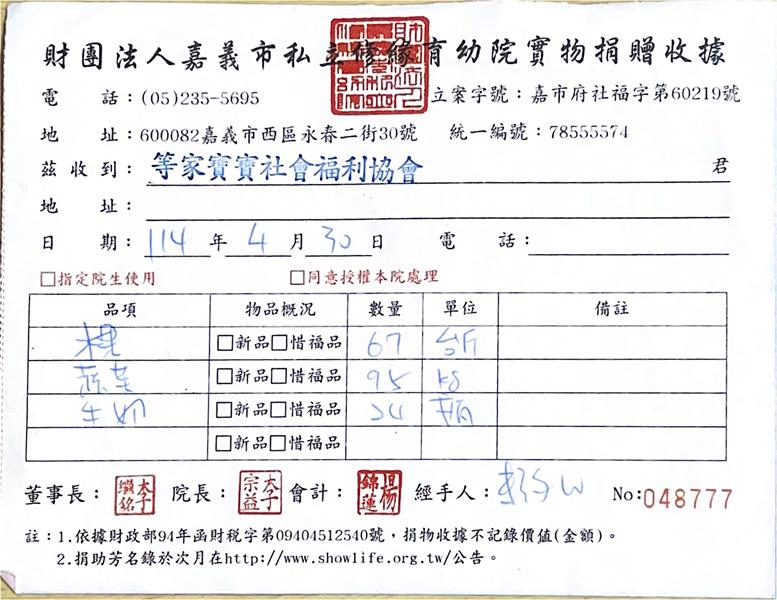 財團法人嘉義市私立修緣育幼院實物捐贈收據
電 話：(05)235-5695 立案字號：嘉市府社福字第60219號
地 址：600082嘉義市西區永春二街30號 統一編號：78555574
茲收到：等家寶寶社會福利協會 君
地 址：
日 期：114 年 4 月 30 日 電 話：
□指定院生使用 □同意授權本院處理
品項 物品概況 數量 單位 備註
□新品□惜福品 67 台斤
蔬菜 □新品□惜福品 95 kg
牛奶 □新品□惜福品 24 瓶
□新品□惜福品
董事長： 院長： 會計： 經手人： No:048777
註：1.依據財政部94年函財稅字第09404512540號，捐物收據不記錄價值(金額)。
2.捐助芳名錄於次月在http://www.showlife.org.tw/公告。